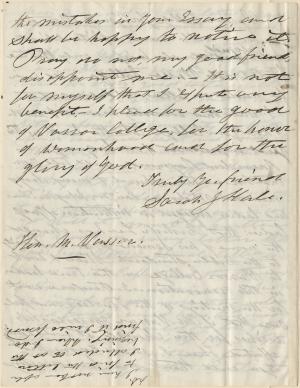 the mistakes in your Essay, and
shall be happy to notice it.
Pray do not, my good friend
disappoint me. It is not
for myself that I expect any
benefit. I plead for the good
of Vassar College, for the honor
of womanhood and for the
glory of God.
Truly Yr. friend
Sarah J Hale.
Hon. M. Vassar.